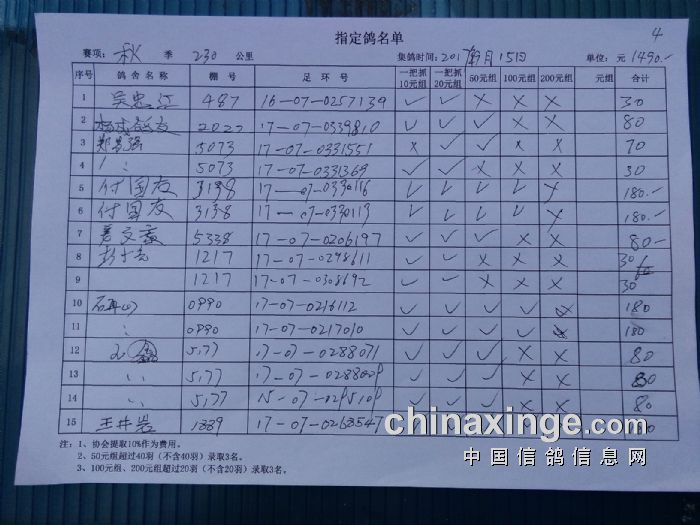 指定鸽名单
4
赛项: 秋 季 230 公里 集鸽时间: 2017年9月15日 单位: 元 1490.-
序号 鸽舍名称 棚号 足环号 一把抓10元组 一把抓20元组 50元组 100元组 200元组 元组 合计
1 吴忠江 487 16-07-0257139 ✓ ✓ × × × 30
2 2022 17-07-0339810 ✓ ✓ ✓ × × 80
3 5073 17-07-0331551 × ✓ ✓ × × 70
4 5073 17-07-0331369 ✓ ✓ × × × 30
5 付国友 3138 17-07-0330116 ✓ ✓ ✓ ✓ × 180.-
6 付国友 3138 17-07-0330113 ✓ ✓ ✓ ✓ × 180.-
7 5338 17-07-0206197 ✓ ✓ ✓ × × 80-
8 1217 17-07-0298611 ✓ ✓ × × × 30
9 1217 17-07-0308692 ✓ ✓ × × × 30
10 0990 17-07-0216112 ✓ ✓ ✓ ✓ × 180
11 0990 17-07-0217010 ✓ ✓ ✓ ✓ × 180
12 5177 17-07-0288071 ✓ ✓ ✓ × × 80
13 5177 ✓ ✓ ✓ × × 80
14 5177 ✓ ✓ ✓ × × 80
15 王井岩 1339 17-07-0263547
注: 1、协会提取10%作为费用。
2、50元组超过40羽(不含40羽)录取3名。
3、100元组、200元组超过20羽(不含20羽)录取3名。
chinaxinge.com
中国信鸽信息网